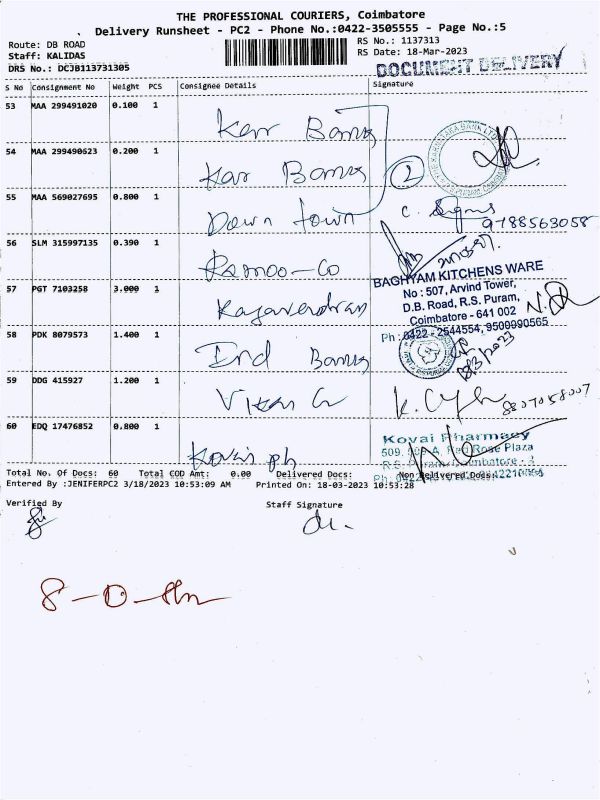 THE PROFESSIONAL COURIERS, Coimbatore
Delivery Runsheet - PC2 - Phone No.:0422-3505555 - Page No.:5
Route: DB ROAD
RS No.: 1137313
Staff: KALIDAS
RS Date: 18-Mar-2023
DRS No.: DCJB113731305
DOCUMENT DELIVERY
S No Consignment No Weight PCS Consignee Details Signature
53 MAA 299491020 0.100 1
54 MAA 299490623 0.200 1
2
55 MAA 569027695 0.800 1 Down town
9788563058
56 SLM 315997135 0.390 1 Ramoo-Co
BAGHYAM KITCHENS WARE
No : 507, Arvind Tower,
57 PGT 7103258 3.000 1
D.B. Road, R.S. Puram,
Coimbatore - 641 002
Ph : 0422 - 2544554, 9500990565
58 PDK 8079573 1.400 1 Ind Bank
59 DDG 415927 1.200 1
8807058007
60 EDQ 17476852 0.800 1 Kovai ph
Kovai Pharmacy
Rose Plaza
Total No. Of Docs: 60 Total COD Amt: 0.00 Delivered Docs: Non Delivered Docs:
Entered By :JENIFERPC2 3/18/2023 10:53:09 AM Printed On: 18-03-2023 10:53:28
Verified By Staff Signature